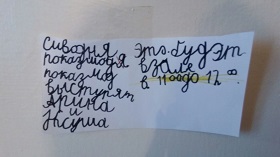 Сиводня
показмодя
показмод
выступят
Арина
и
Ксуша
Это. будэт.
взале
в 11⁰⁰до 12 ⁰⁰.